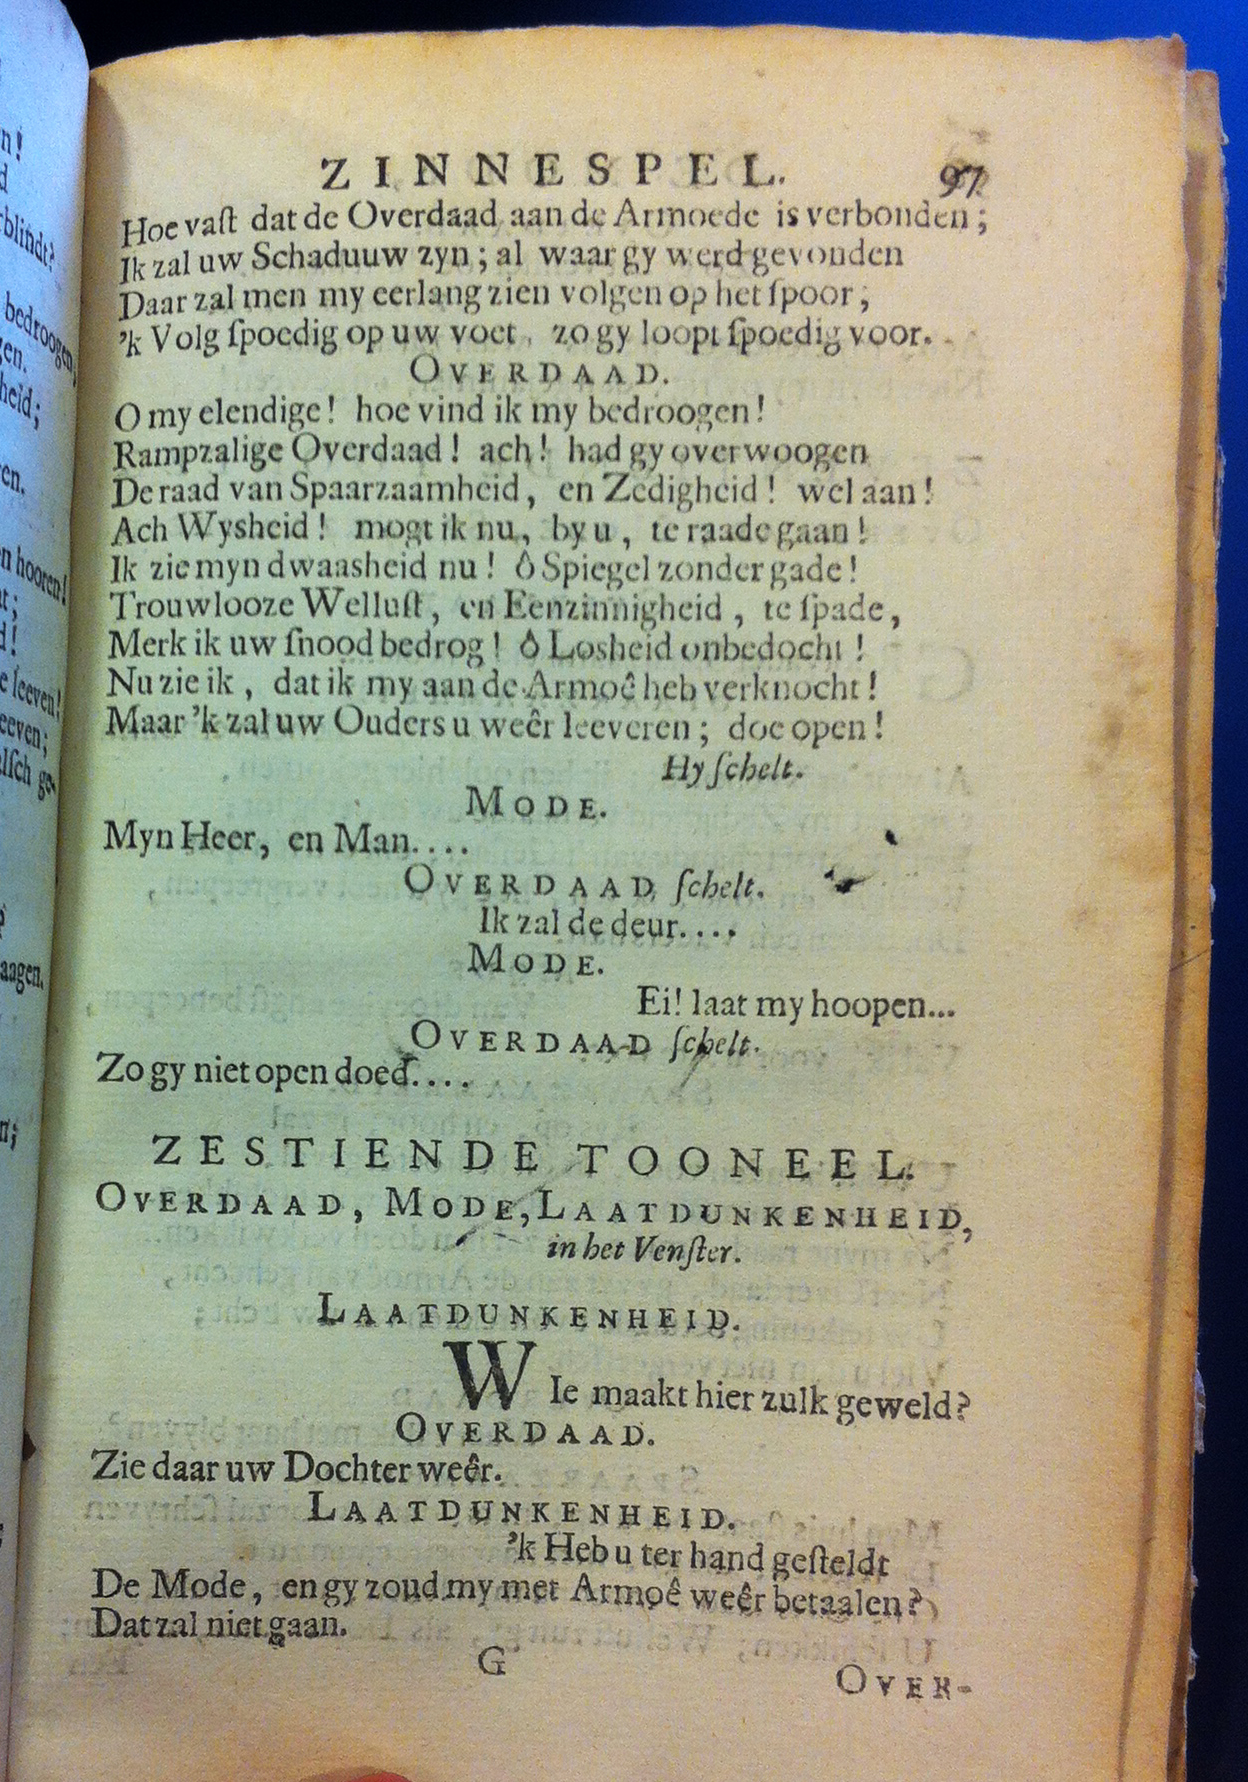 ZINNESPEL. 97
Hoe vaſt dat de Overdaad aan de Armoede is verbonden;
Ik zal uw Schaduuw zyn; al waar gy werd gevonden
Daar zal men my eerlang zien volgen op het ſpoor;
'k Volg ſpoedig op uw voet, zo gy loopt ſpoedig voor.
OVERDAAD.
O my elendige! hoe vind ik my bedroogen!
Rampzalige Overdaad! ach! had gy overwoogen
De raad van Spaarzaamheid, en Zedigheid! wel aan!
Ach Wysheid! mogt ik nu, by u, te raade gaan!
Ik zie myn dwaasheid nu! ô Spiegel zonder gade!
Trouwlooze Welluſt, en Eenzinnigheid, te ſpade,
Merk ik uw ſnood bedrog! ô Losheid onbedocht!
Nu zie ik, dat ik my aan de Armoê heb verknocht!
Maar 'k zal uw Ouders u weêr leeveren; doe open!
Hy ſchelt.
MODE.
Myn Heer, en Man....
OVERDAAD ſchelt.
Ik zal de deur....
MODE.
Ei! laat my hoopen...
OVERDAAD ſchelt.
Zo gy niet open doed....
ZESTIENDE TOONEEL.
OVERDAAD, MODE, LAATDUNKENHEID,
in het Venſter.
LAATDUNKENHEID.
WIe maakt hier zulk geweld?
OVERDAAD.
Zie daar uw Dochter weêr.
LAATDUNKENHEID.
'k Heb u ter hand geſteldt
De Mode, en gy zoud my met Armoê weêr betaalen?
Dat zal niet gaan.
G OVER-